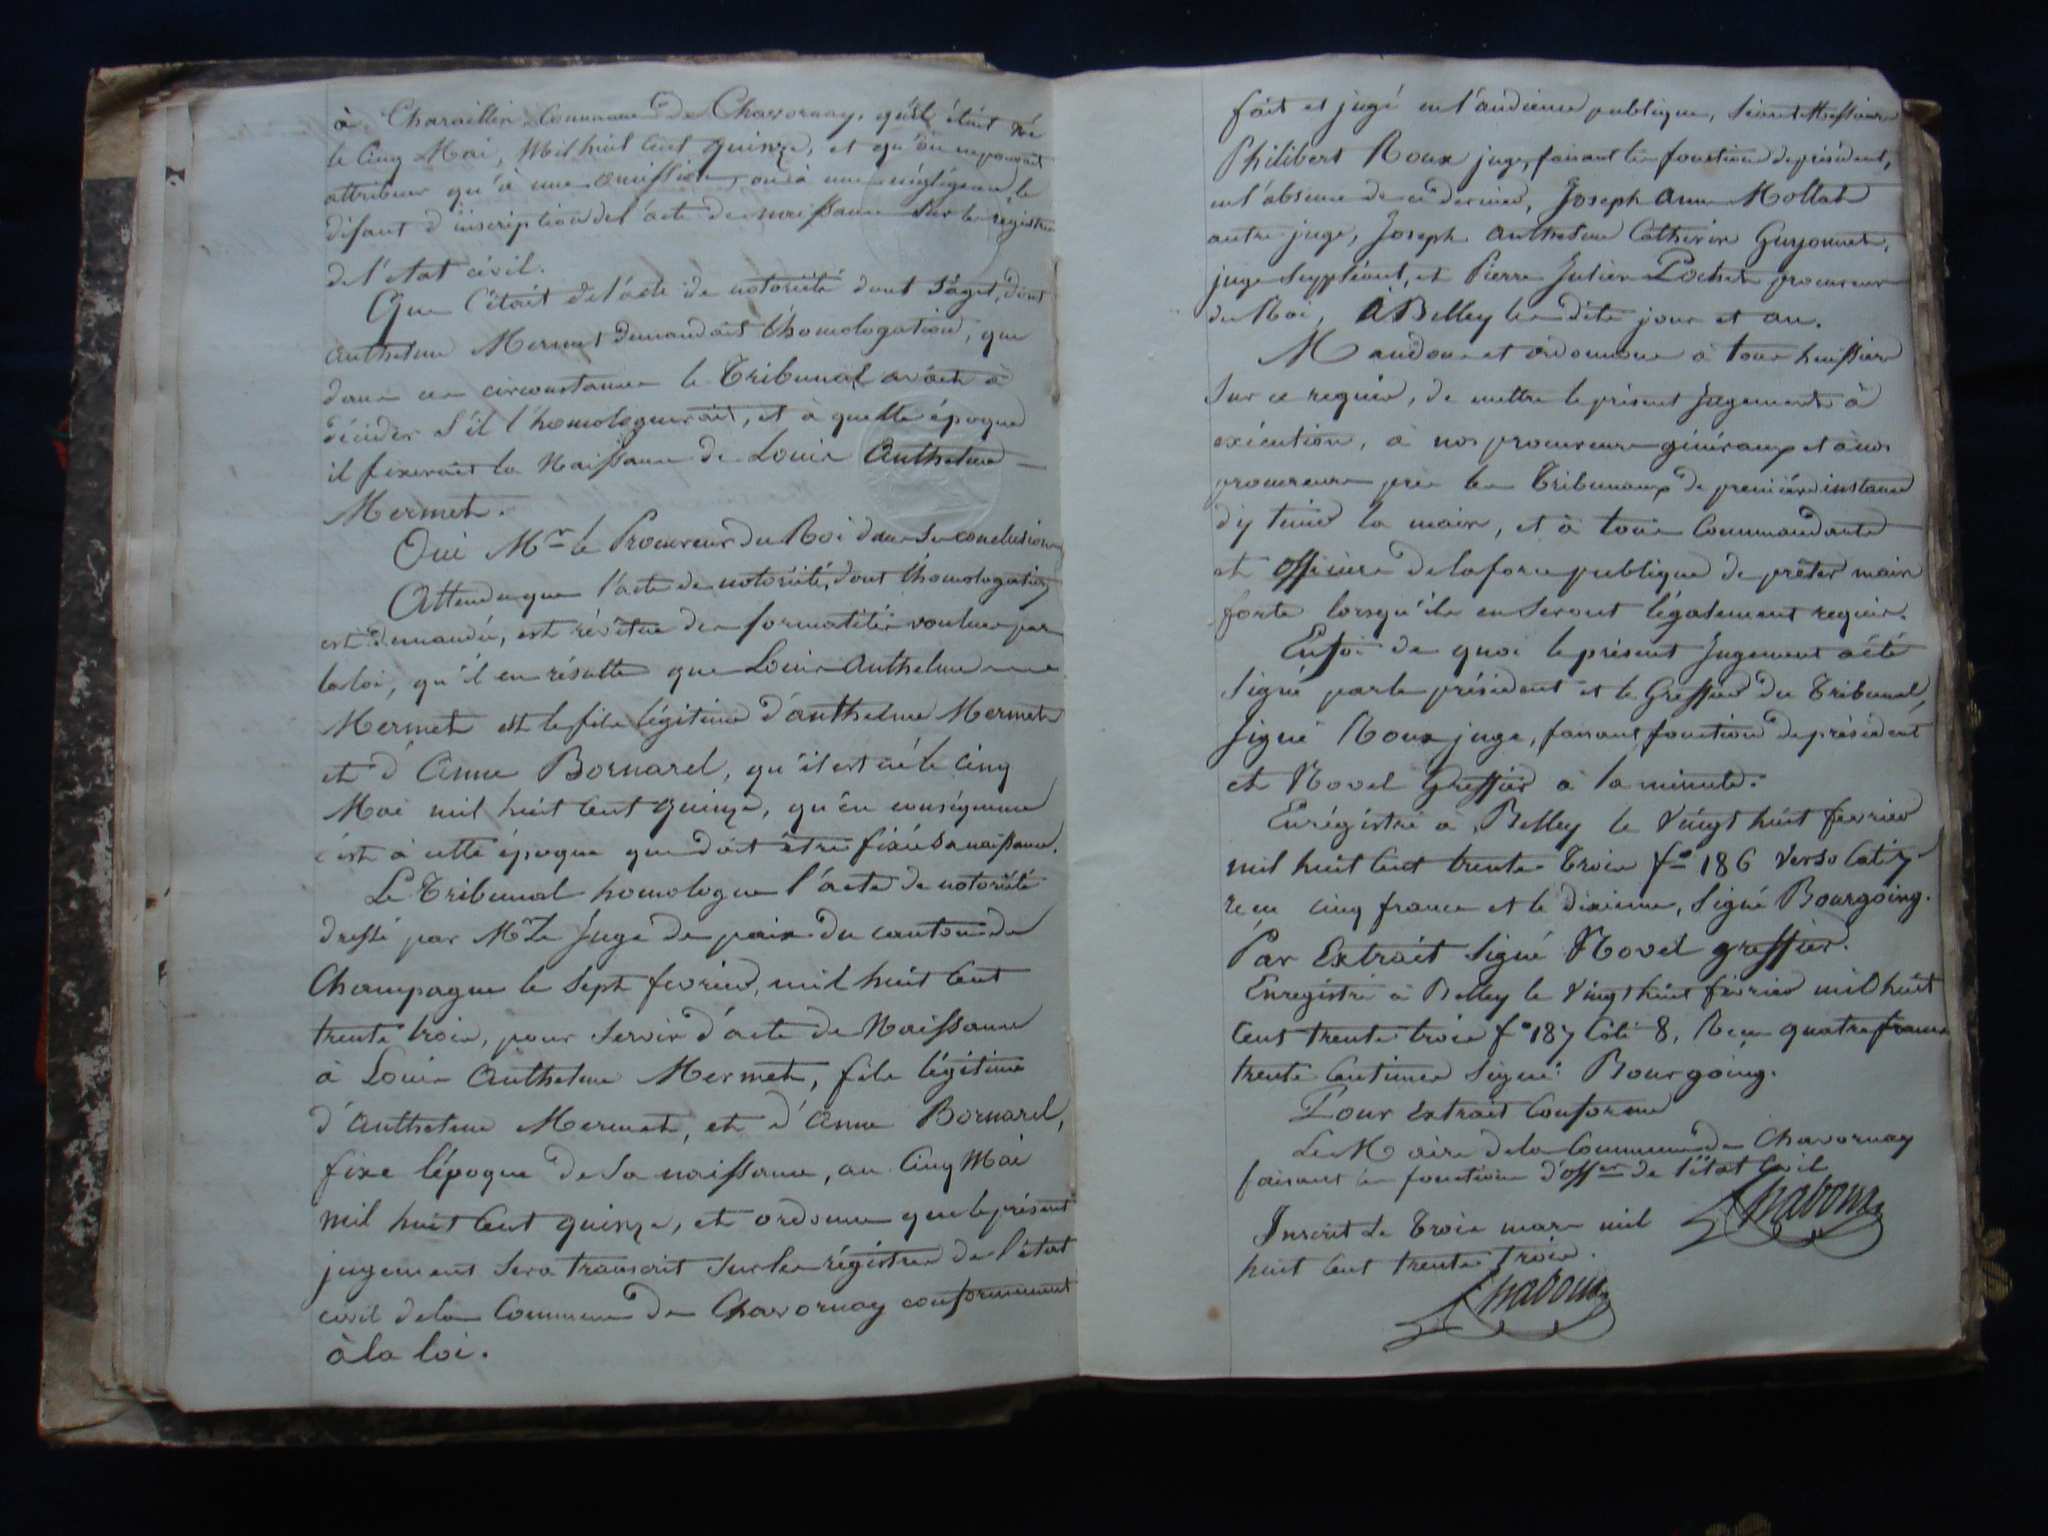 à Charaillin Commune de Chavornay, qu'il était né
le Cinq Mai, Mil huit Cent quinze, et qu'on ne pouvait
attribuer qu'à une omission, ou à une négligence, le
défaut d'inscription de l'acte de naissance sur les régistres
de l'état civil.
Que c'était de l'acte de notoriété dont s'agit, dont
Anthelme Mermet demandait l'homologation, que
dans ces circonstances le Tribunal avait à
décider s'il l'homologuerait, et à quelle époque
il fixerait la Naissance de Louis Anthelme
Mermet.
Oui Mr le Procureur du Roi dans ses conclusions
Attendu que l'acte de notoriété, dont l'homologation
est demandée, est révêtue des formalités voulues par
la loi, qu'il en résulte que Louis Anthelme
Mermet est le fils légitime d'anthelme Mermet
et d'Anne Bornarel, qu'il est né le Cinq
Mai mil huit Cent quinze, qu'en conséquence
c'est à cette époque que doit être fixée sa naissance.
Le Tribunal homologue l'acte de notoriété
dressé par Mr Le Juge de paix du canton de
Champagne le Sept fevrier, mil huit Cent
trente trois, pour servir d'acte de Naissance
à Louis Anthelme Mermet, fils légitime
d'Anthelme Mermet, et d'Anne Bornarel,
fixe l'époque de sa naissance, au Cinq Mai
mil huit Cent quinze, et ordonne que le présent
jugement sera transcrit sur les régistres de l'état
civil de la Commune de Chavornay conformément
à la loi.
fait et jugé en l'audience publique, séant Messieurs
Philibert Roux juge, faisant les fonctions de président,
en l'absence de ce dernier, Joseph Anne Mollat
autre juge, Joseph Anthelme Catherin Guyonnet,
juge suppléant, et Pierre Julien Pochet procureur
du Roi, A Belley les dits jour et an.
Mandons et ordonnons à tous huissiers
sur ce requis, de mettre le présent Jugement à
exécution, à nos procureurs généraux et à nos
procureurs près les Tribunaux de première instance
d'y tenir la main, et à tous Commandants
et officiers de la force publique de prêter main
forte lorsqu'ils en seront légalement requis.
En foi de quoi le présent Jugement a été
signé par le président et le Greffier du Tribunal,
signé Roux juge, faisant fonction de président
et Novel Greffier à la minute.
Enrégistré à Belley le Vingt huit fevrier
mil huit Cent trente trois fo 186 Verso
reçu cinq francs et le dixième, signé Bourgoing.
Par Extrait signé Novel greffier.
Enregistré à Belley le Vingt huit fevrier mil huit
Cent trente trois fo 187 Cote 8, Reçu quatre francs
trente Centimes signé: Bourgoing.
Pour Extrait Conforme
Le Maire de la Commune de Chavornay
faisant les fonctions d'offer de l'état Civil
Inscrit Le Trois mars mil
huit Cent trente trois.